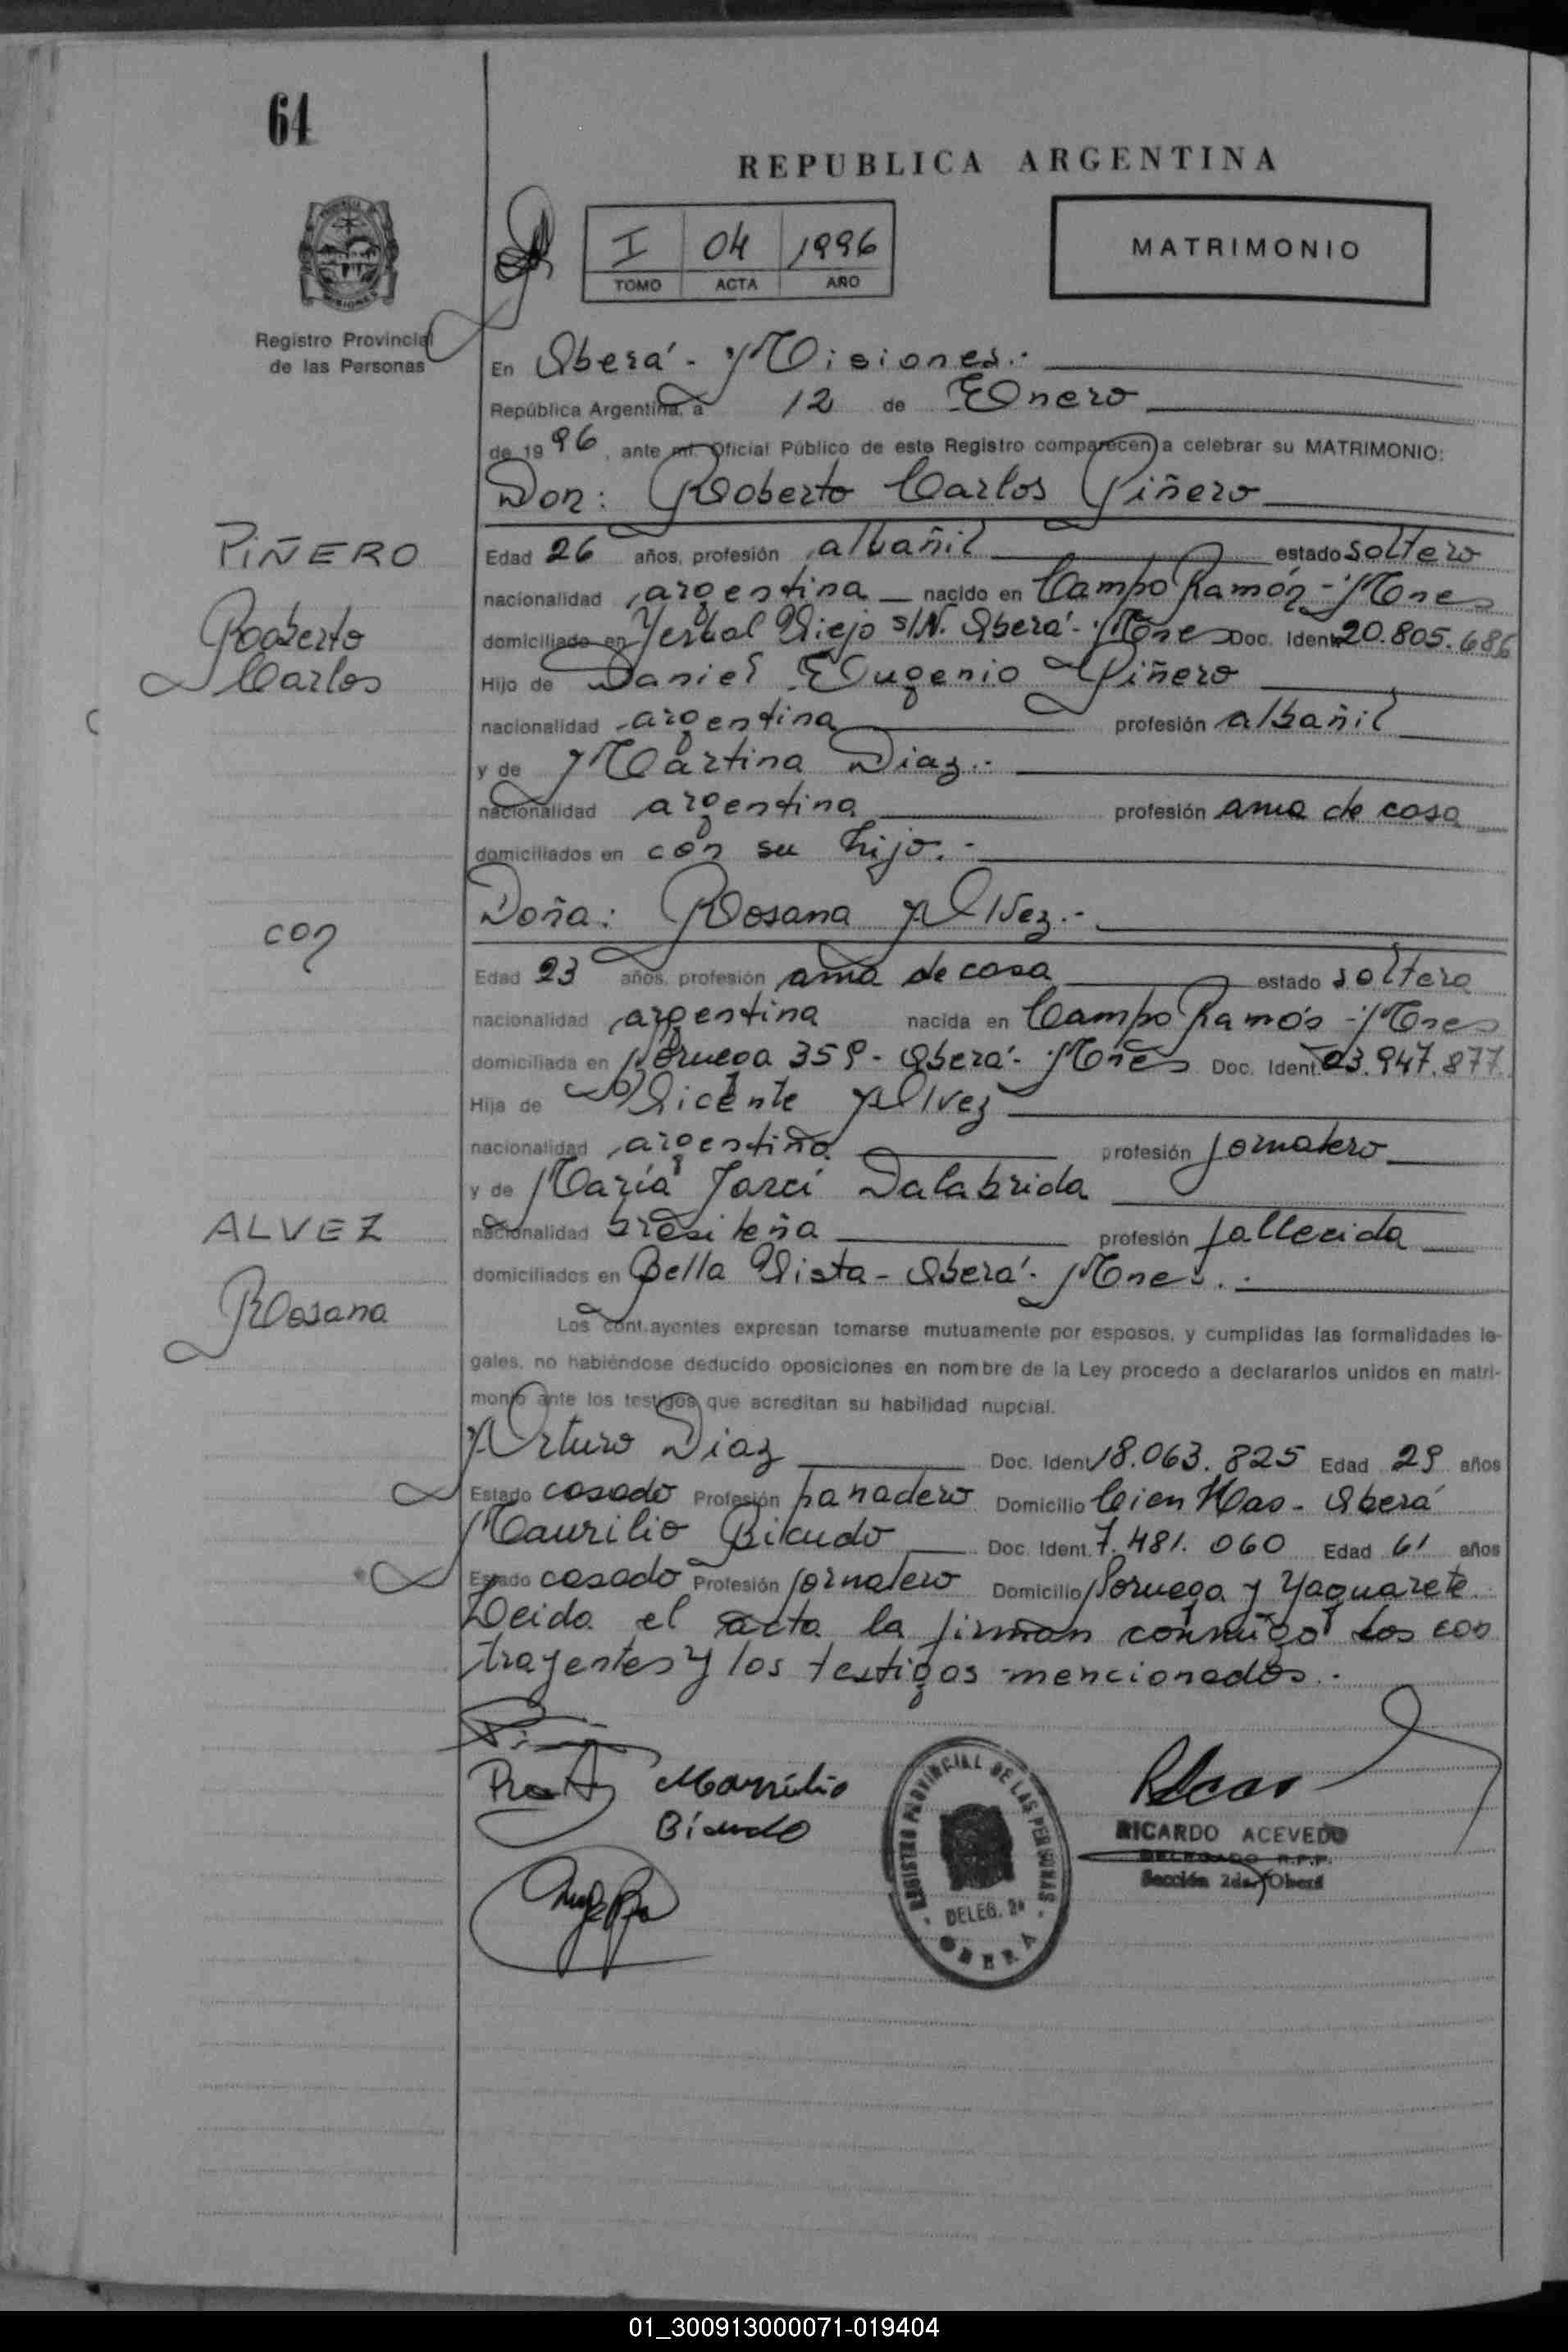 64
REPUBLICA ARGENTINA
I 04 1996
TOMO ACTA AÑO
MATRIMONIO
Registro Provincial
de las Personas
En Oberá - Misiones.-
República Argentina, a 12 de Enero
de 1996, ante mí, Oficial Público de este Registro comparecen a celebrar su MATRIMONIO:
Don: Roberto Carlos Piñero
PIÑERO
Roberto
Carlos
Edad 26 años, profesión albañil estado soltero
nacionalidad argentina nacido en Campo Ramón - Mnes
domiciliado en Yerbal Viejo s/N. Oberá - Mnes Doc. Ident. 20.805.686
Hijo de Daniel Eugenio Piñero
nacionalidad argentina profesión albañil
y de Martina Diaz.-
nacionalidad argentina profesión ama de casa
domiciliados en con su hijo.-
con
Doña: Rosana Alvez.-
Edad 23 años, profesión ama de casa estado soltera
nacionalidad argentina nacida en Campo Ramón - Mnes
domiciliada en Noruega 359 - Oberá - Mnes Doc. Ident. 23.947.877
Hija de Vicente Alvez
nacionalidad argentina profesión jornalero
y de María Jarci Dalabrida
ALVEZ
Rosana
nacionalidad brasileña profesión fallecida
domiciliados en Bella Vista - Oberá - Mnes.-
Los cont.ayentes expresan tomarse mutuamente por esposos, y cumplidas las formalidades le-
gales, no habiéndose deducido oposiciones en nombre de la Ley procedo a declararlos unidos en matri-
monio ante los testigos que acreditan su habilidad nupcial.
Arturo Diaz Doc. Ident. 18.063.825 Edad 29 años
Estado casado Profesión panadero Domicilio Cien Has - Oberá
Maurilio Bicudo Doc. Ident. 7.481.060 Edad 61 años
Estado casado Profesión jornalero Domicilio Noruega y Yaguareté
Leida el acta la firman conmigo los con
trayentes y los testigos mencionados.-
Maurilio
Bicudo
REGISTRO PROVINCIAL DE LAS PERSONAS
DELEG. 2a
OBERA
RICARDO ACEVEDO
DELEGADO R.P.P.
Sección 2da. Oberá
01_300913000071-019404